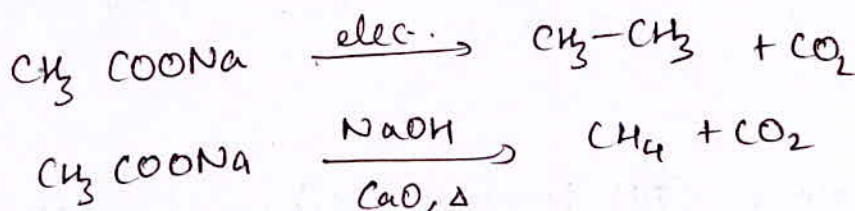 CH₃ COONa —elec.→ CH₃-CH₃ + CO₂
CH₃ COONa —NaOH / CaO, Δ→ CH₄ + CO₂